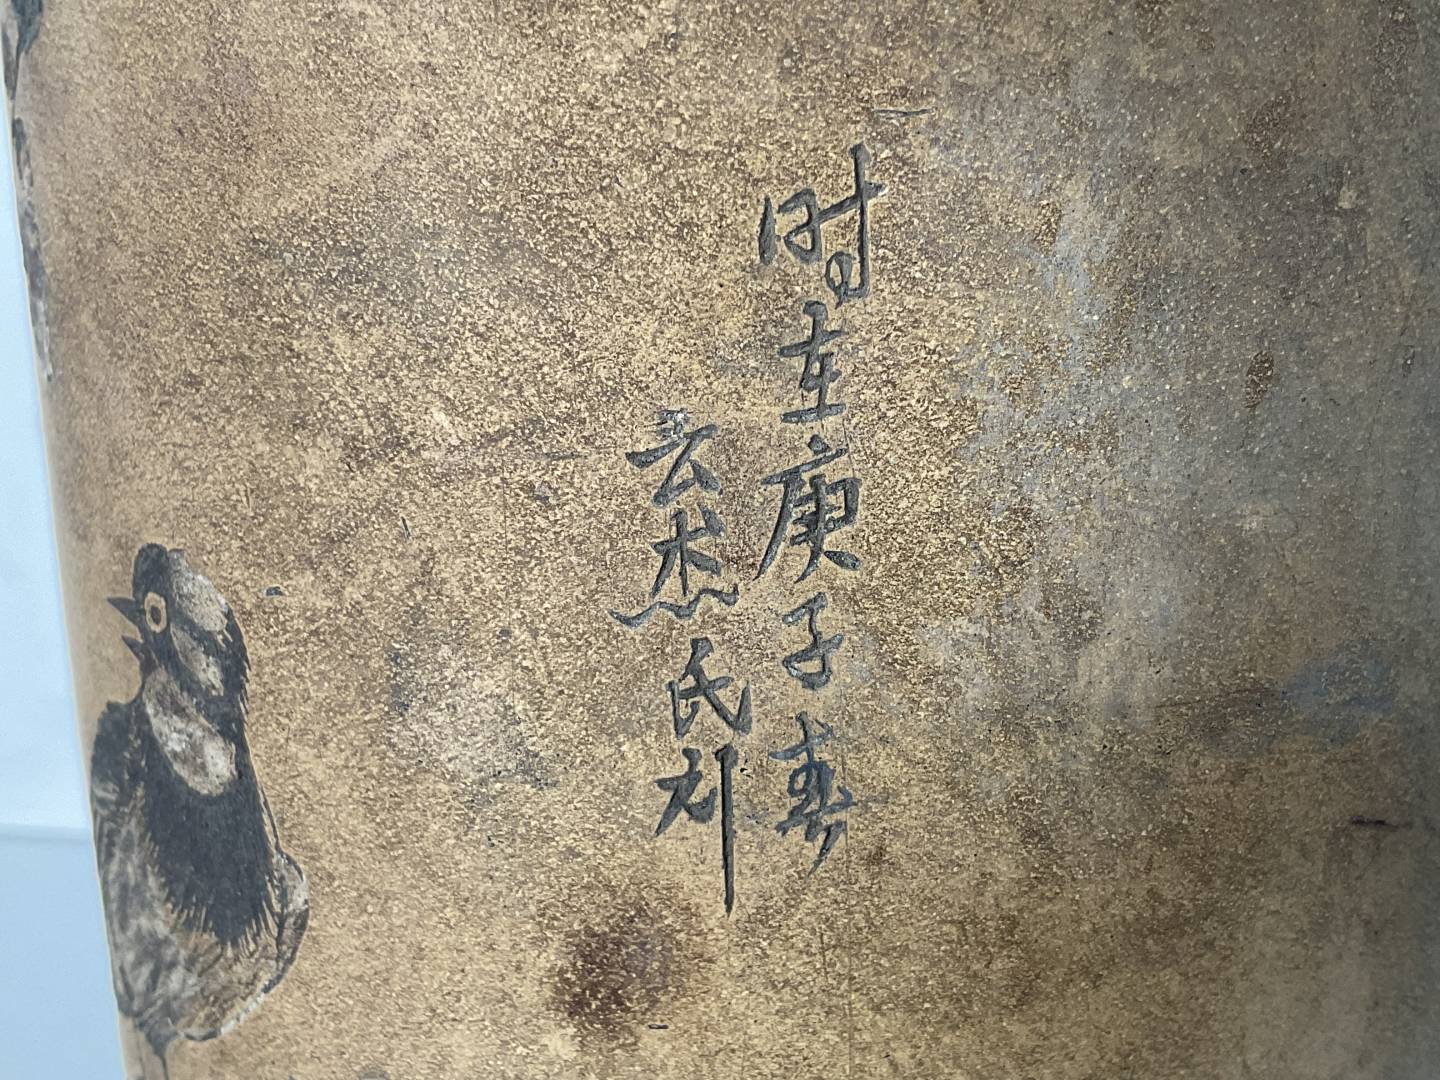 时在庚子春
云杰氏刻